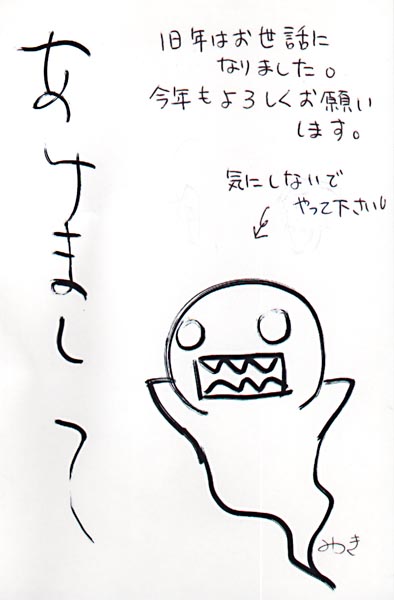 あけまして
旧年はお世話に
なりました。
今年もよろしくお願い
します。
気にしないで
やって下さい
みき